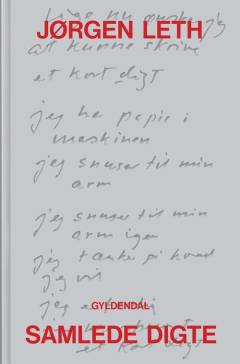 JØRGEN LETH
Lige nu ønsker jeg
at kunne skrive
et kort digt
jeg har papir i
maskinen
jeg snuser til min
arm
jeg snuser til min
arm igen
jeg tænker på hvad
jeg vil
GYLDENDAL
SAMLEDE DIGTE
et kort digt